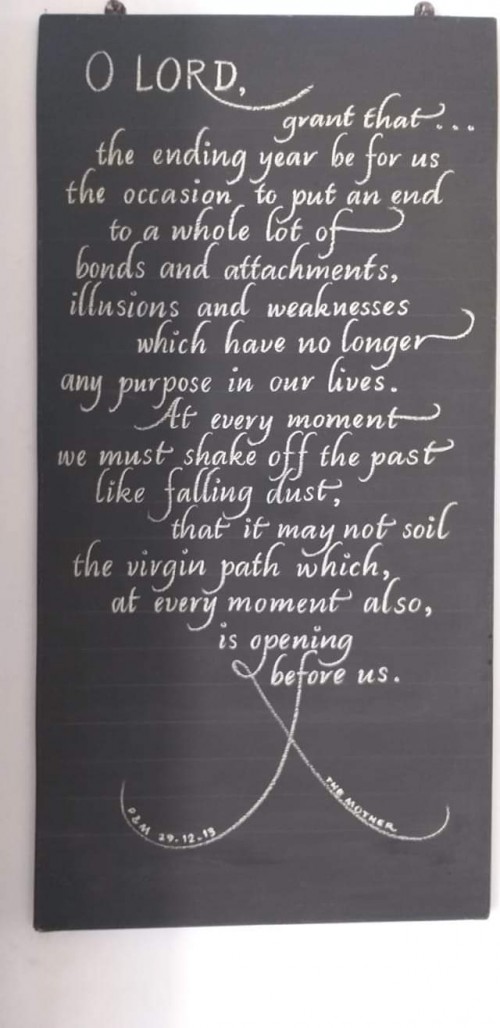 O LORD,
grant that...
the ending year be for us
the occasion to put an end
to a whole lot of
bonds and attachments,
illusions and weaknesses
which have no longer
any purpose in our lives.
At every moment
we must shake off the past
like falling dust,
that it may not soil
the virgin path which,
at every moment also,
is opening
before us.
P&M 29-12-15
THE MOTHER